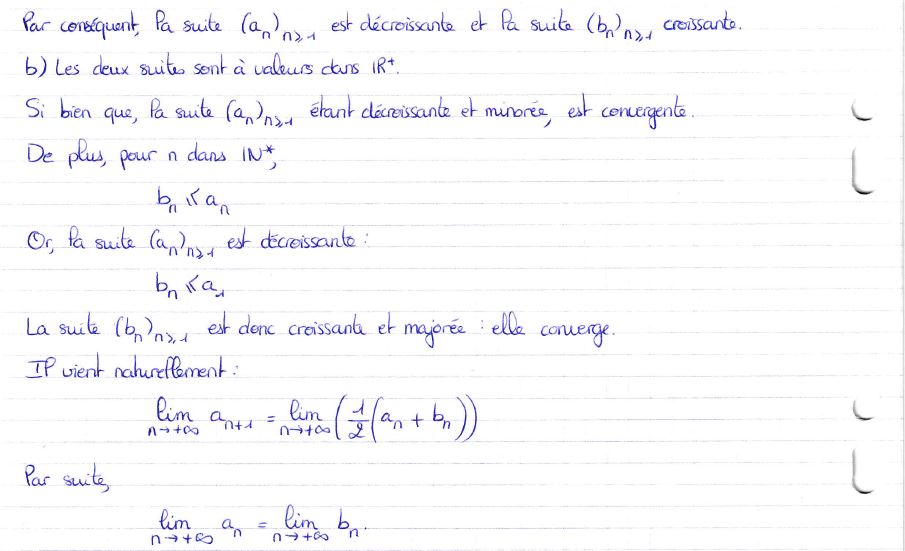 Par conséquent, la suite (aₙ)ₙ⩾₁ est décroissante et la suite (bₙ)ₙ⩾₁ croissante.
b) Les deux suites sont à valeurs dans ℝ⁺.
Si bien que, la suite (aₙ)ₙ⩾₁ étant décroissante et minorée, est convergente.
De plus, pour n dans ℕ*,
bₙ ⩽ aₙ
Or, la suite (aₙ)ₙ⩾₁ est décroissante :
bₙ ⩽ a₁
La suite (bₙ)ₙ⩾₁ est donc croissante et majorée : elle converge.
Il vient naturellement :
lim_{n→+∞} a_{n+1} = lim_{n→+∞} (1/2 (aₙ + bₙ))
Par suite,
lim_{n→+∞} aₙ = lim_{n→+∞} bₙ.